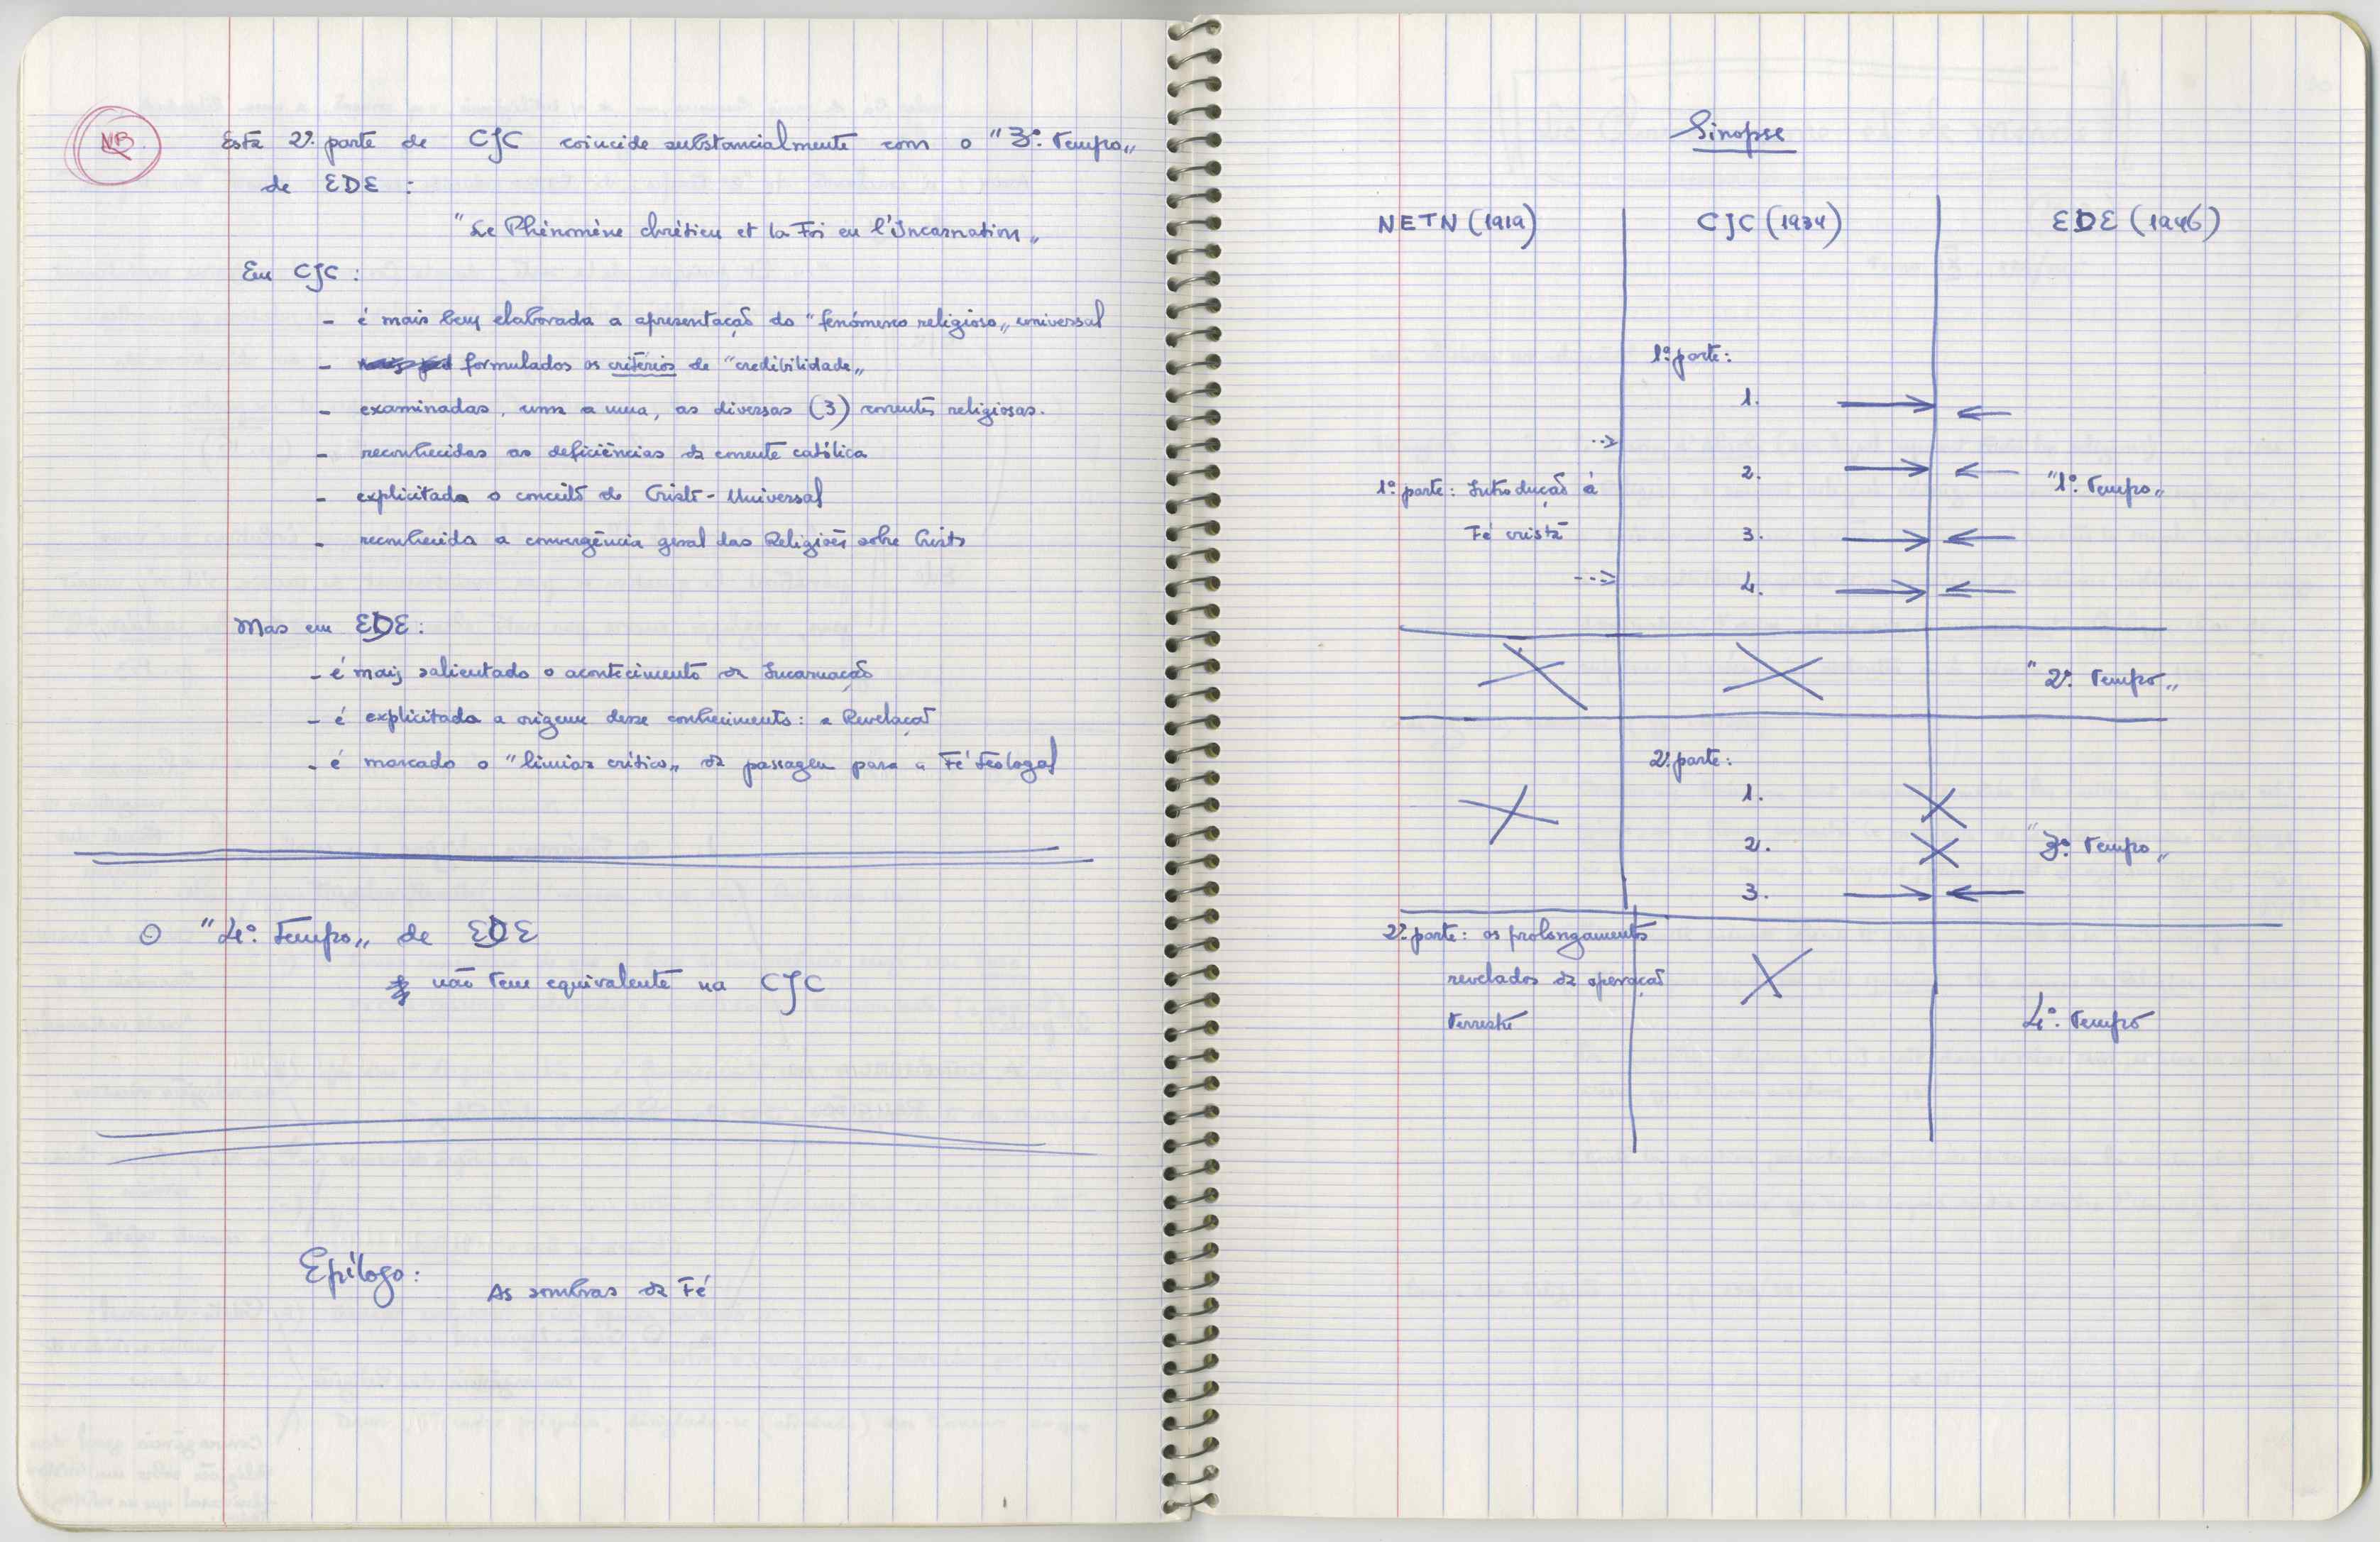 NB.
Esta 2ª. parte de CJC coincide substancialmente com o "3º. Tempo„
de EDE :
"Le Phénomène chrétien et la Foi en l'Incarnation„
Em CJC :
- é mais bem elaborada a apresentação do "fenómeno religioso„ universal
- formulados os critérios de "credibilidade„
- examinadas, uma a uma, as diversas (3) correntes religiosas.
- reconhecidas as deficiências da corrente católica
- explicitado o conceito de Cristo-Universal
- reconhecida a convergência geral das Religiões sobre Cristo
Mas em EDE :
- é mais salientado o acontecimento da Incarnação
- é explicitada a origem desse conhecimento: a Revelação
- é marcado o "limiar crítico„ da passagem para a Fé Teologal
O "4º. Tempo„ de EDE
não tem equivalente na CJC
Epílogo: As sombras da Fé
Sinopse
NETN (1919) CJC (1934) EDE (1946)
1ª. parte:
1.
2. "1º. Tempo„
1ª. parte: Introdução à
Fé cristã 3.
4.
"2º. Tempo„
2ª. parte:
1.
2. "3º. Tempo„
3.
2ª. parte: os prolongamentos
revelados da operação
terrestre 4º. Tempo